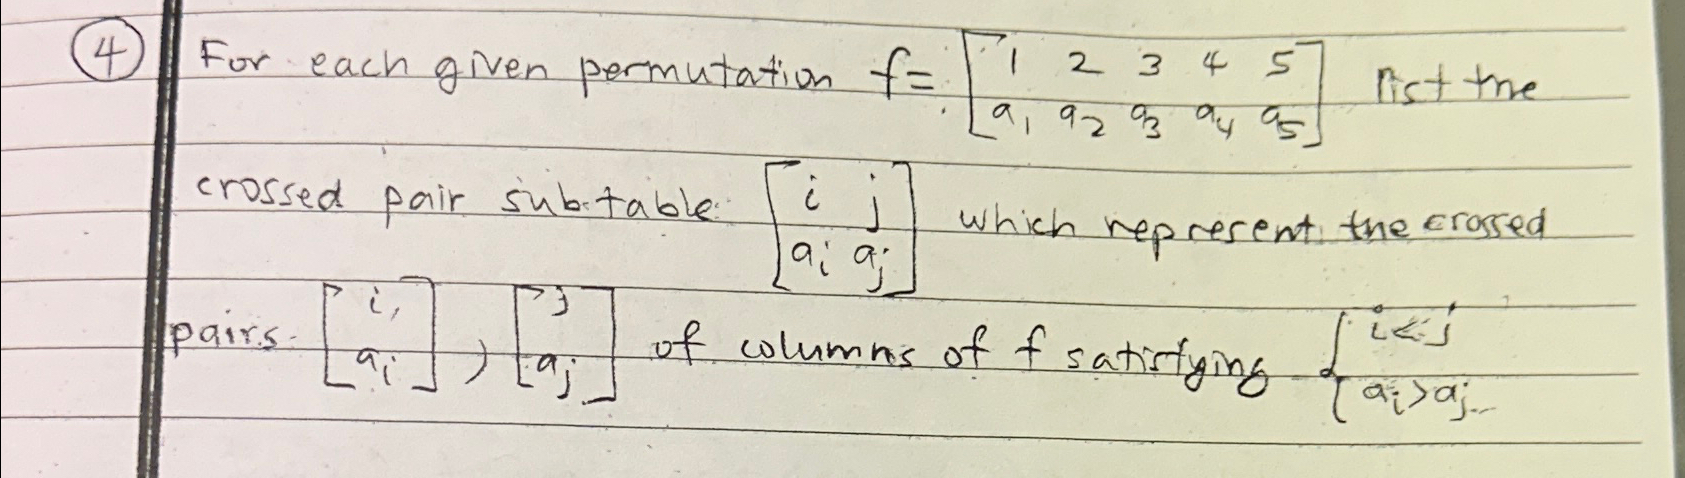 ④ For each given permutation f = [1 2 3 4 5 / a₁ a₂ a₃ a₄ a₅] list the
crossed pair subtable [i j / aᵢ aⱼ] which represent the crossed
pairs [i, / aᵢ], [j / aⱼ] of columns of f satisfying { i<j / aᵢ>aⱼ